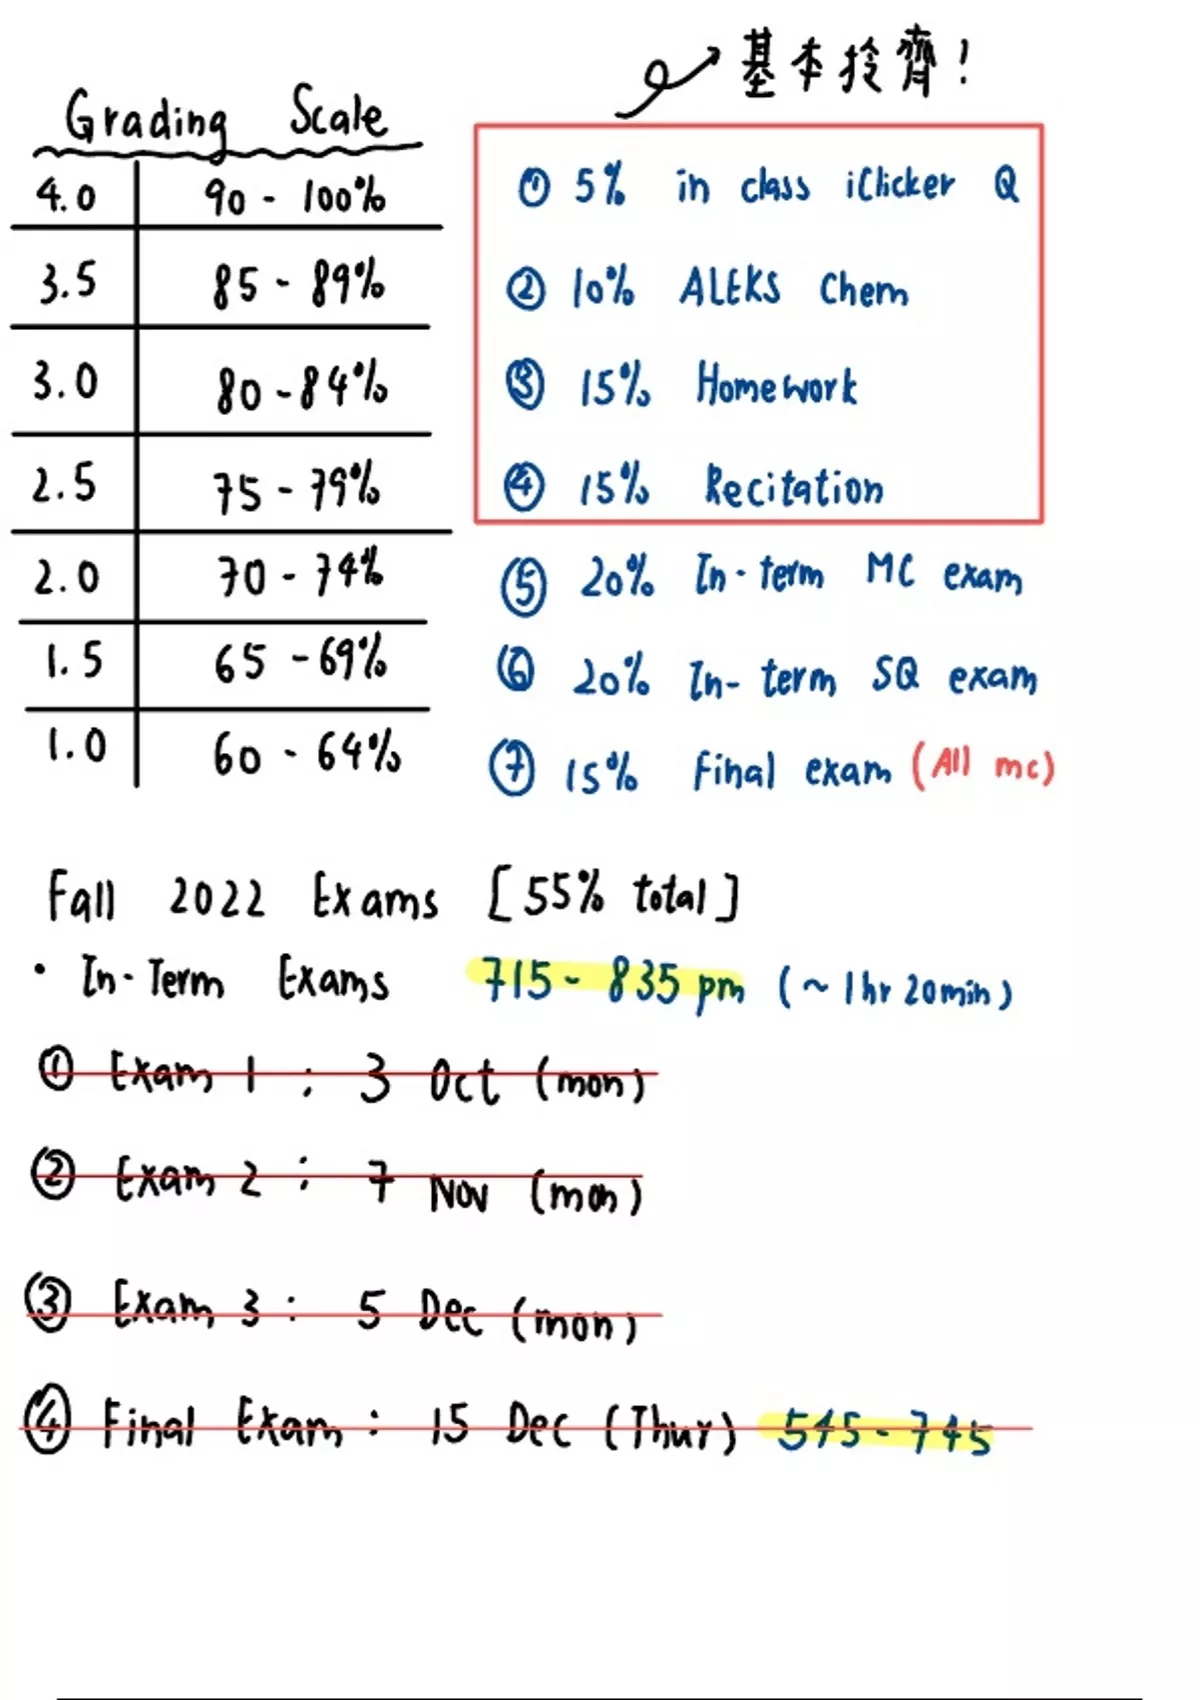 基本拎齊!
Grading Scale
4.0 90 - 100%
3.5 85 - 89%
3.0 80 - 84%
2.5 75 - 79%
2.0 70 - 74%
1.5 65 - 69%
1.0 60 - 64%
① 5% in class iClicker Q
② 10% ALEKS Chem
③ 15% Homework
④ 15% Recitation
⑤ 20% In-term MC exam
⑥ 20% In-term SQ exam
⑦ 15% Final exam (All mc)
Fall 2022 Exams [55% total]
• In-Term Exams 715 - 835 pm (~ 1hr 20min)
① Exam 1 : 3 Oct (mon)
② Exam 2 : 7 Nov (mon)
③ Exam 3 : 5 Dec (mon)
④ Final Exam : 15 Dec (Thur) 545 - 745